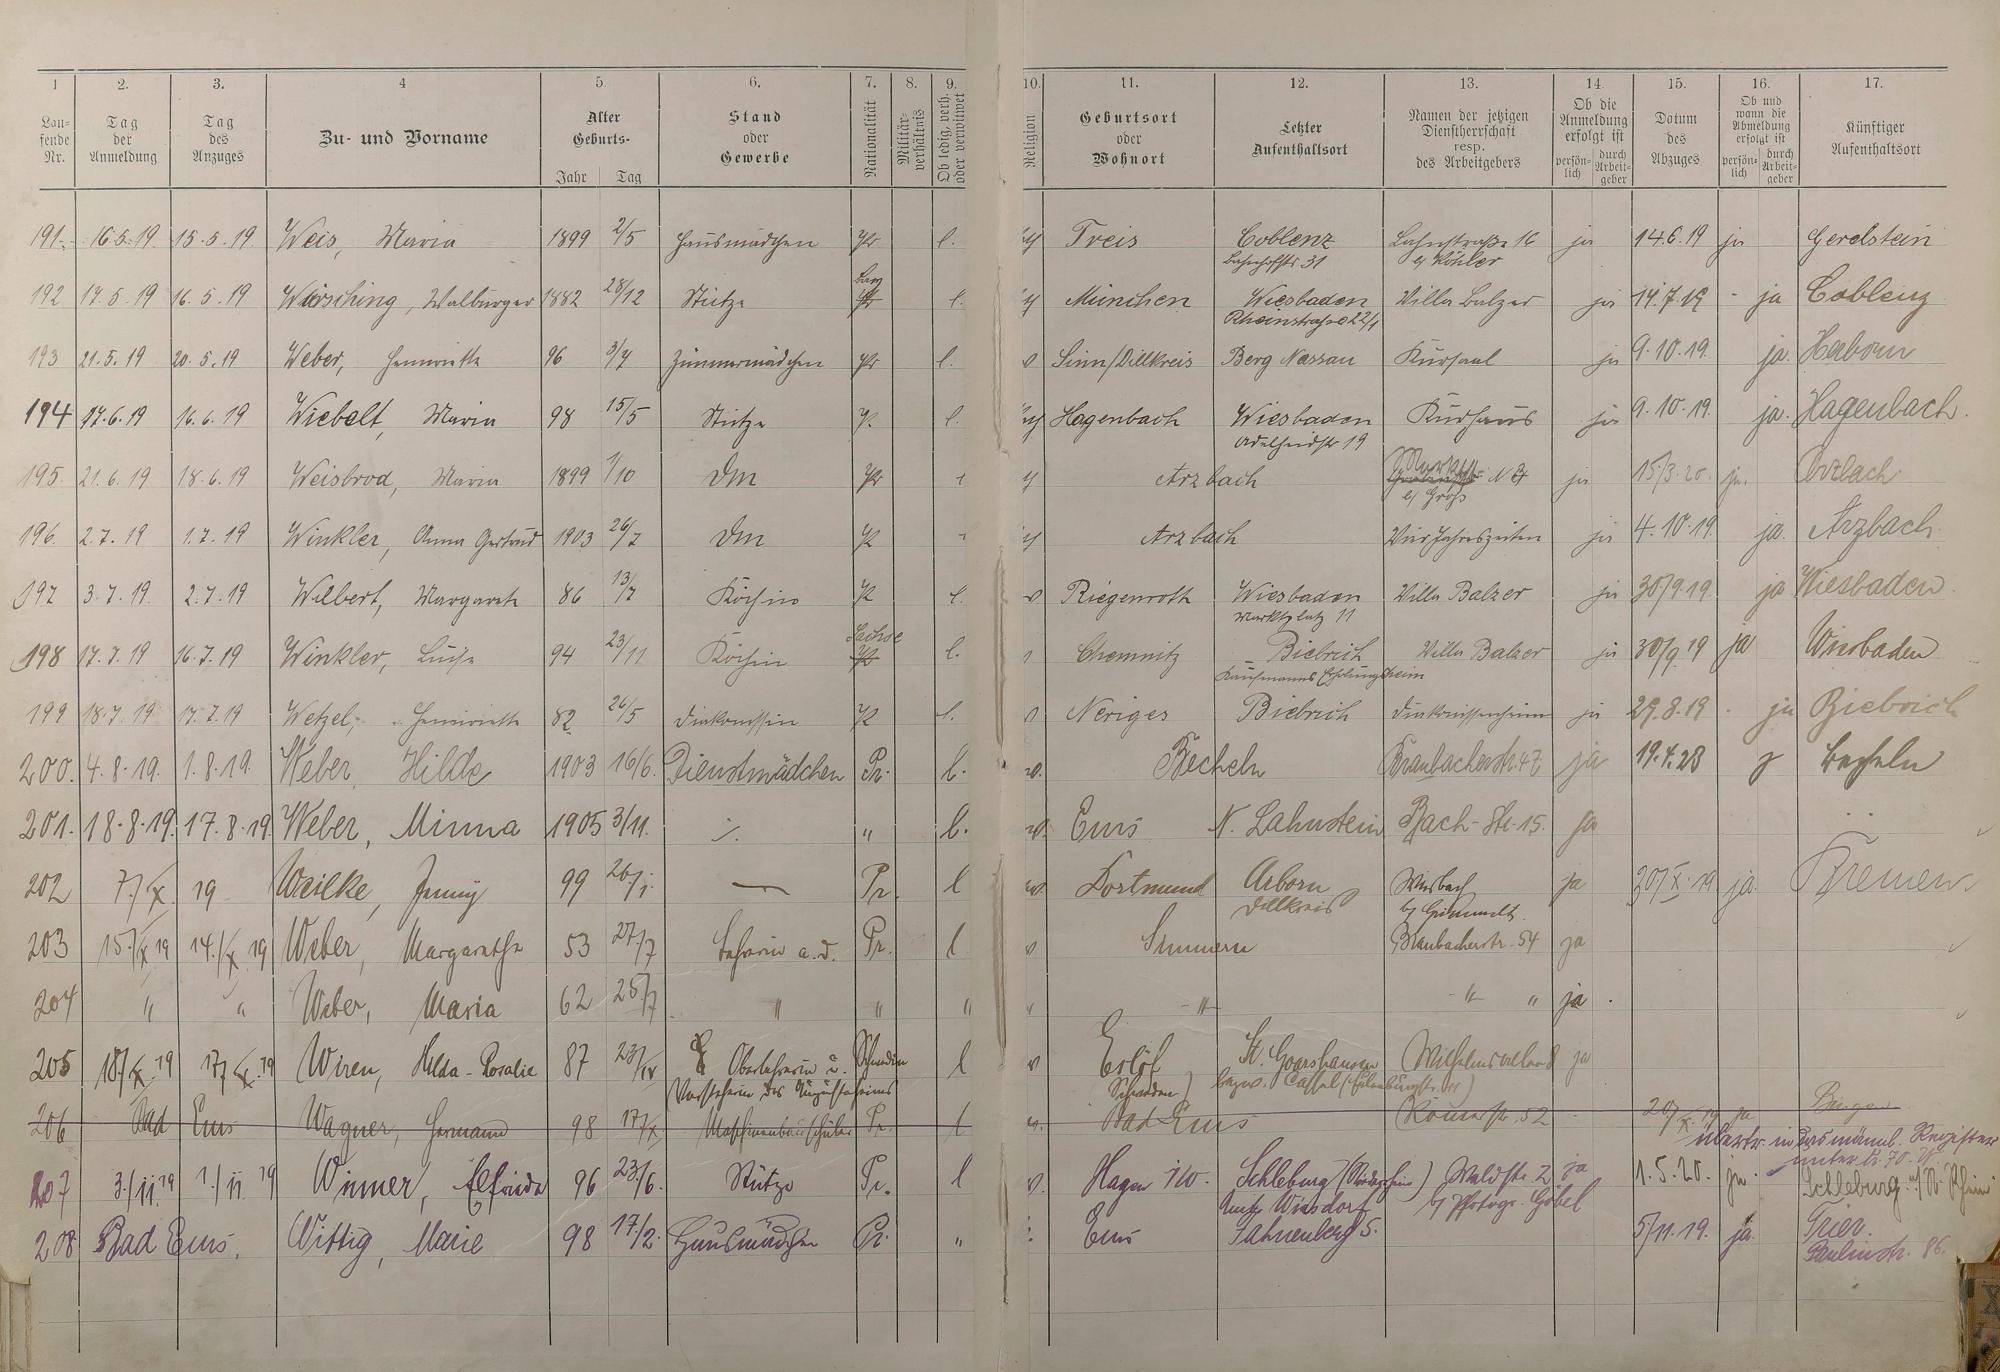 1 2. 3. 4 5. 6. 7. 8. 9. 10. 11. 12. 13. 14. 15. 16. 17.
Lau-
fende
Nr.
Tag
der
Anmeldung
Tag
des
Anzuges
Zu- und Vorname
Alter
Geburts-
Jahr Tag
Stand
oder
Gewerbe
Nationalität
Militär-
verhältnis
Ob ledig, verh.
oder verwitwet
Religion
Geburtsort
oder
Wohnort
Letzter
Aufenthaltsort
Namen der jetzigen
Dienstherrschaft
resp.
des Arbeitgebers
Ob die
Anmeldung
erfolgt ist
persön-
lich
durch
Arbeit-
geber
Datum
des
Abzuges
Ob und
wann die
Abmeldung
erfolgt ist
persön-
lich
durch
Arbeit-
geber
Künftiger
Aufenthaltsort
191. 16.5.19 15.5.19 Weis, Maria 1899 2/5 Hausmädchen Pr l. Treis Coblenz Lahnstraße 16 ja 14.6.19 ja
Bahnhofstr 31 b/ Köhler
192 17.5.19 16.5.19 Walburga 1882 28/12 Stütze l. München Wiesbaden Villa Balzer ja 14.7.19 - ja Coblenz
Rheinstraße 22/1
193 21.5.19 20.5.19 Weber, Henriette 96 3/7 Zimmermädchen Pr l. Sinn/Dillkreis Berg Nassau Kursaal ja 9.10.19. ja. Herborn
194 17.6.19 16.6.19 Wiebelt, Maria 98 15/5 Stütze l. Hagenbach Wiesbaden Kurhaus ja 9.10.19. ja. Hagenbach.
Adelheidstr 19
195. 21.6.19 18.6.19 Weisbrod, Maria 1899 1/10 Dm Pr Arzbach ja 15/3.20. ja. Arzbach
b/ Groß
196. 2.7.19 1.7.19 Winkler, Anna Gertrud 1903 26/7 Dm Arzbach Vier Jahreszeiten ja 4.10.19. ja. Arzbach.
197 3.7.19. 2.7.19 Wilbert, Margarete 86 13/7 Köchin l. Riegenroth Wiesbaden Villa Balzer ja 30/9.19. ja Wiesbaden.
Marktplatz 11
Sachse
198 17.7.19 16.7.19 Winkler, Luise 94 23/11 Köchin l. Chemnitz Biebrich Villa Balzer ja 30/9 19 ja Wiesbaden
Kaufmanns Erholungsheim
199 18.7.19 17.7.19 Wetzel, Henriette 82 26/5 Diakonissin l. Neviges Biebrich Diakonissenheim ja 29.8.19 - ja Biebrich
200. 4.8.19. 1.8.19. Weber, Hilde 1903 16/6. Dienstmädchen Pr. l. Becheln Braubacherstr. 47 ja 19.4.23 Becheln
201. 18.8.19. 17.8.19. Weber, Minna 1905 3/11. " l. Ems N. Lahnstein Bach-Str. 15. ja
202 7./X. 19 Jenny 99 26/1. Pr. l Dortmund Arborn ja 20/X.19 ja. Bremen.
Dillkreis
203 15./X 19 14./X 19 Weber, Margarethe 53 27/7 Lehrerin a. D. Pr. l Simmern Braubacherstr. 54 ja
204 " " Weber, Maria 62 25/7 " " " " -"- -"- " ja.
205 18/X.19 17/X.19 Wiren, Hilda-Rosalie 87 23/IV Oberlehrerin u. Schwedin l Eslöf St. Goarshausen ja
Vorsteherin des Augustaheims Schweden) bezw. Cassel
206 Bad Ems Wagner, Hermann 98 17/X. Maschinenbauschüler Pr. l Bad Ems Römerstr. 52 20/X.19 ja
übertr. in das männl. Register
unter Nr. 70.
207 3./11.19 1./11 19 Wimmer, Elfriede 96 23./6. Stütze Pr. l Hagen i/W. Schleburg Waldstr. 2 ja 1.5.20. ja. Schleburg
b/ Photogr. Göbel
208. Bad Ems. Wittig, Marie 98 17/2. Hausmädchen Pr. " Ems 5/11.19. ja. Trier.
Paulinstr. 86.